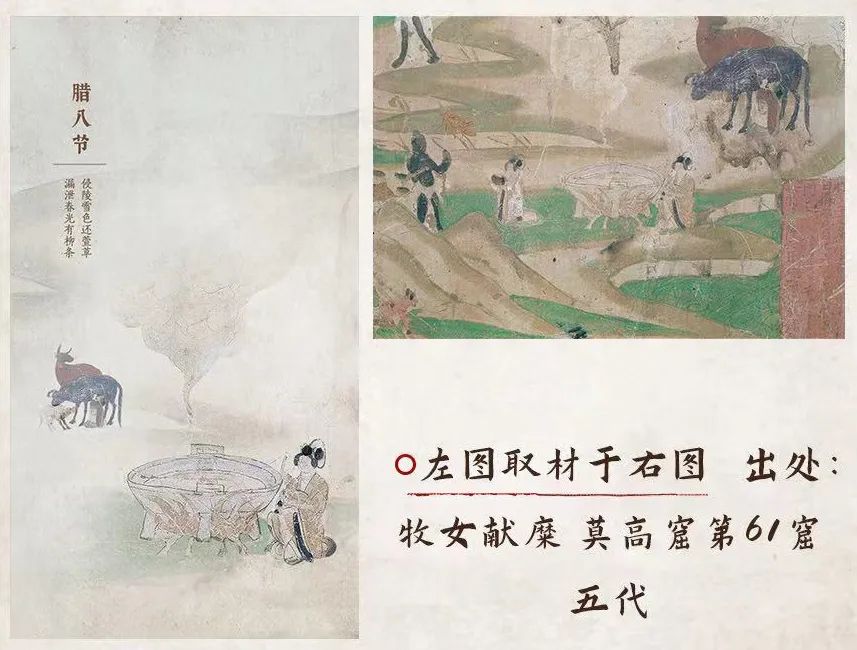 腊八节
侵陵雪色还萱草
漏泄春光有柳条
左图取材于右图 出处：
牧女献糜 莫高窟第61窟
五代